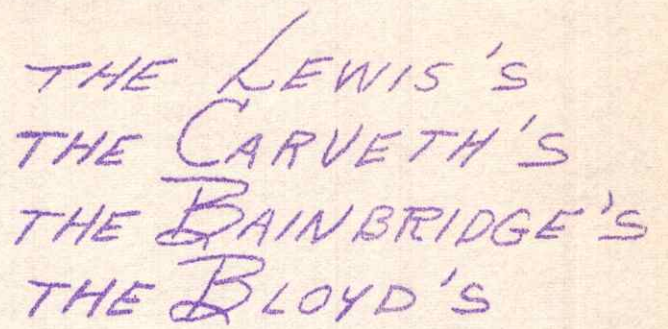 THE LEWIS'S
THE CARVETH'S
THE BAINBRIDGE'S
THE BLOYD'S